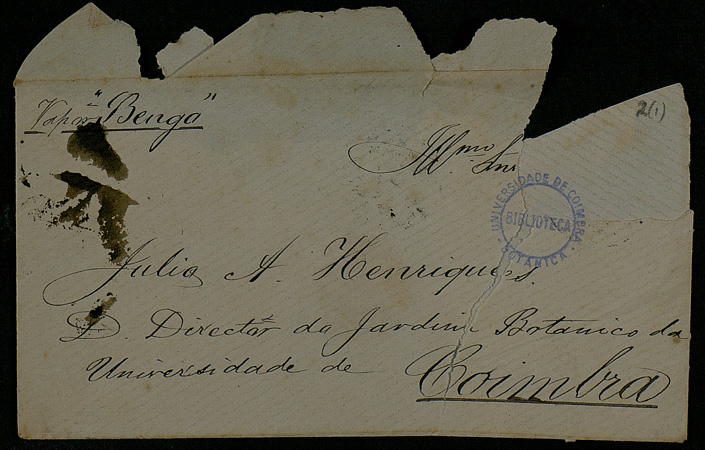 Vapor "Benga"
2(1)
Illmo. Snr
UNIVERSIDADE DE COIMBRA
BIBLIOTECA
BOTANICA
Julio A. Henriques.
D. Director do Jardim Botanico da
Universidade de Coimbra